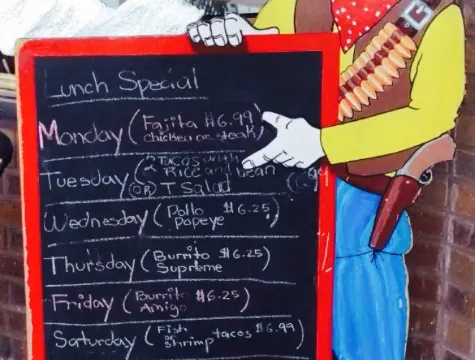 unch Special
Monday (Fajita $6.99)
chicken or steak
Tuesday (2 Tacos with
Rice and bean
OR T Salad
Wednesday (Pollo $6.25)
Popeye
Thursday (Burrito $6.25)
Supreme
Friday (Burrito $6.25)
Amigo
Saturday (Fish tacos $6.99)
or
Shrimp